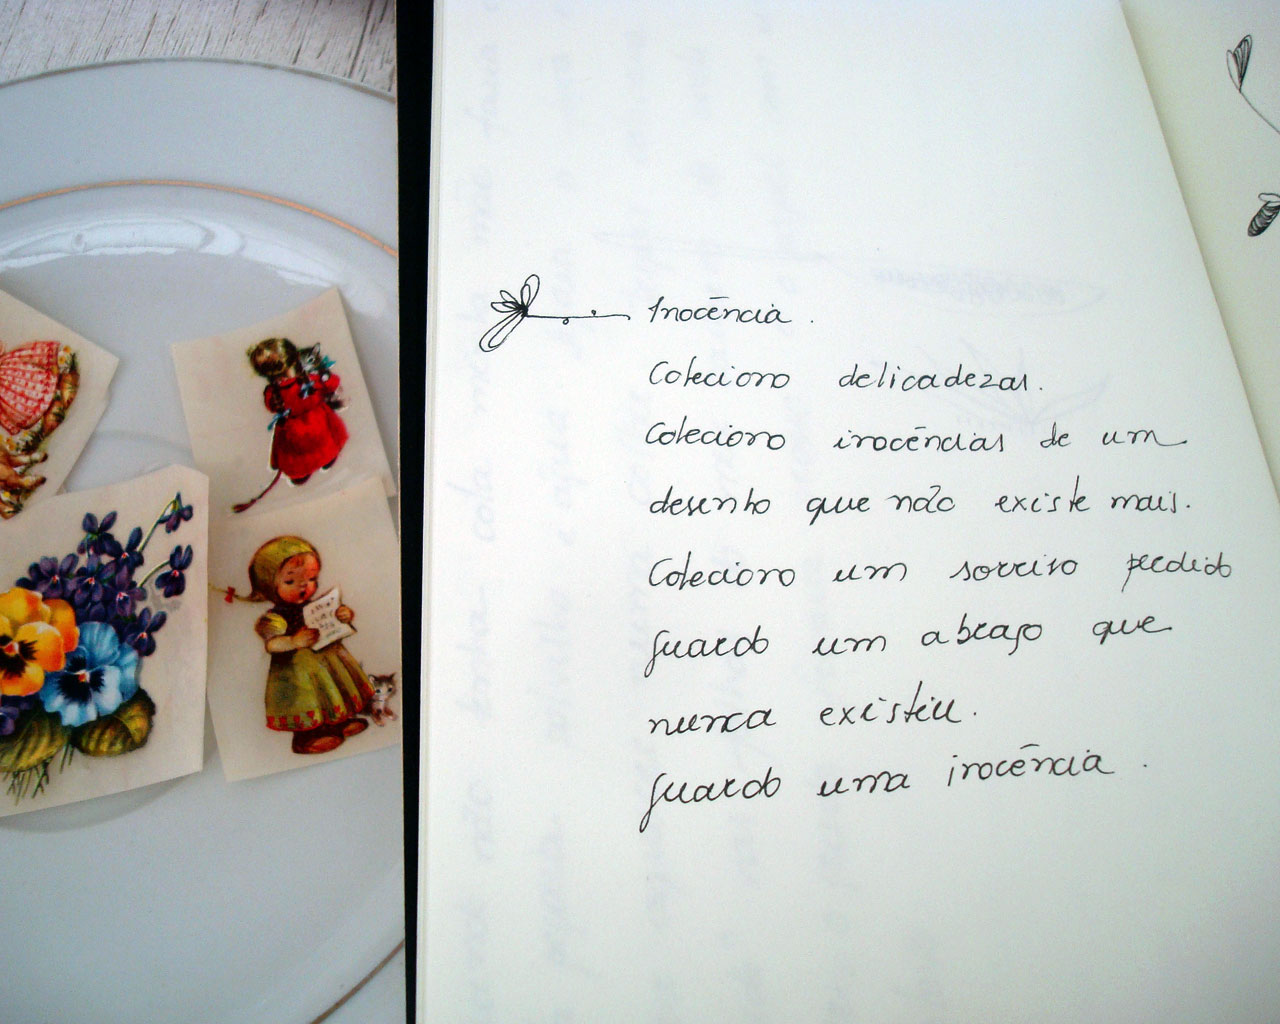 Inocência.
Coleciono delicadezas.
Coleciono inocências de um
desenho que não existe mais.
Coleciono um sorriso perdido
guardo um abraço que
nunca existiu.
guardo uma inocência.